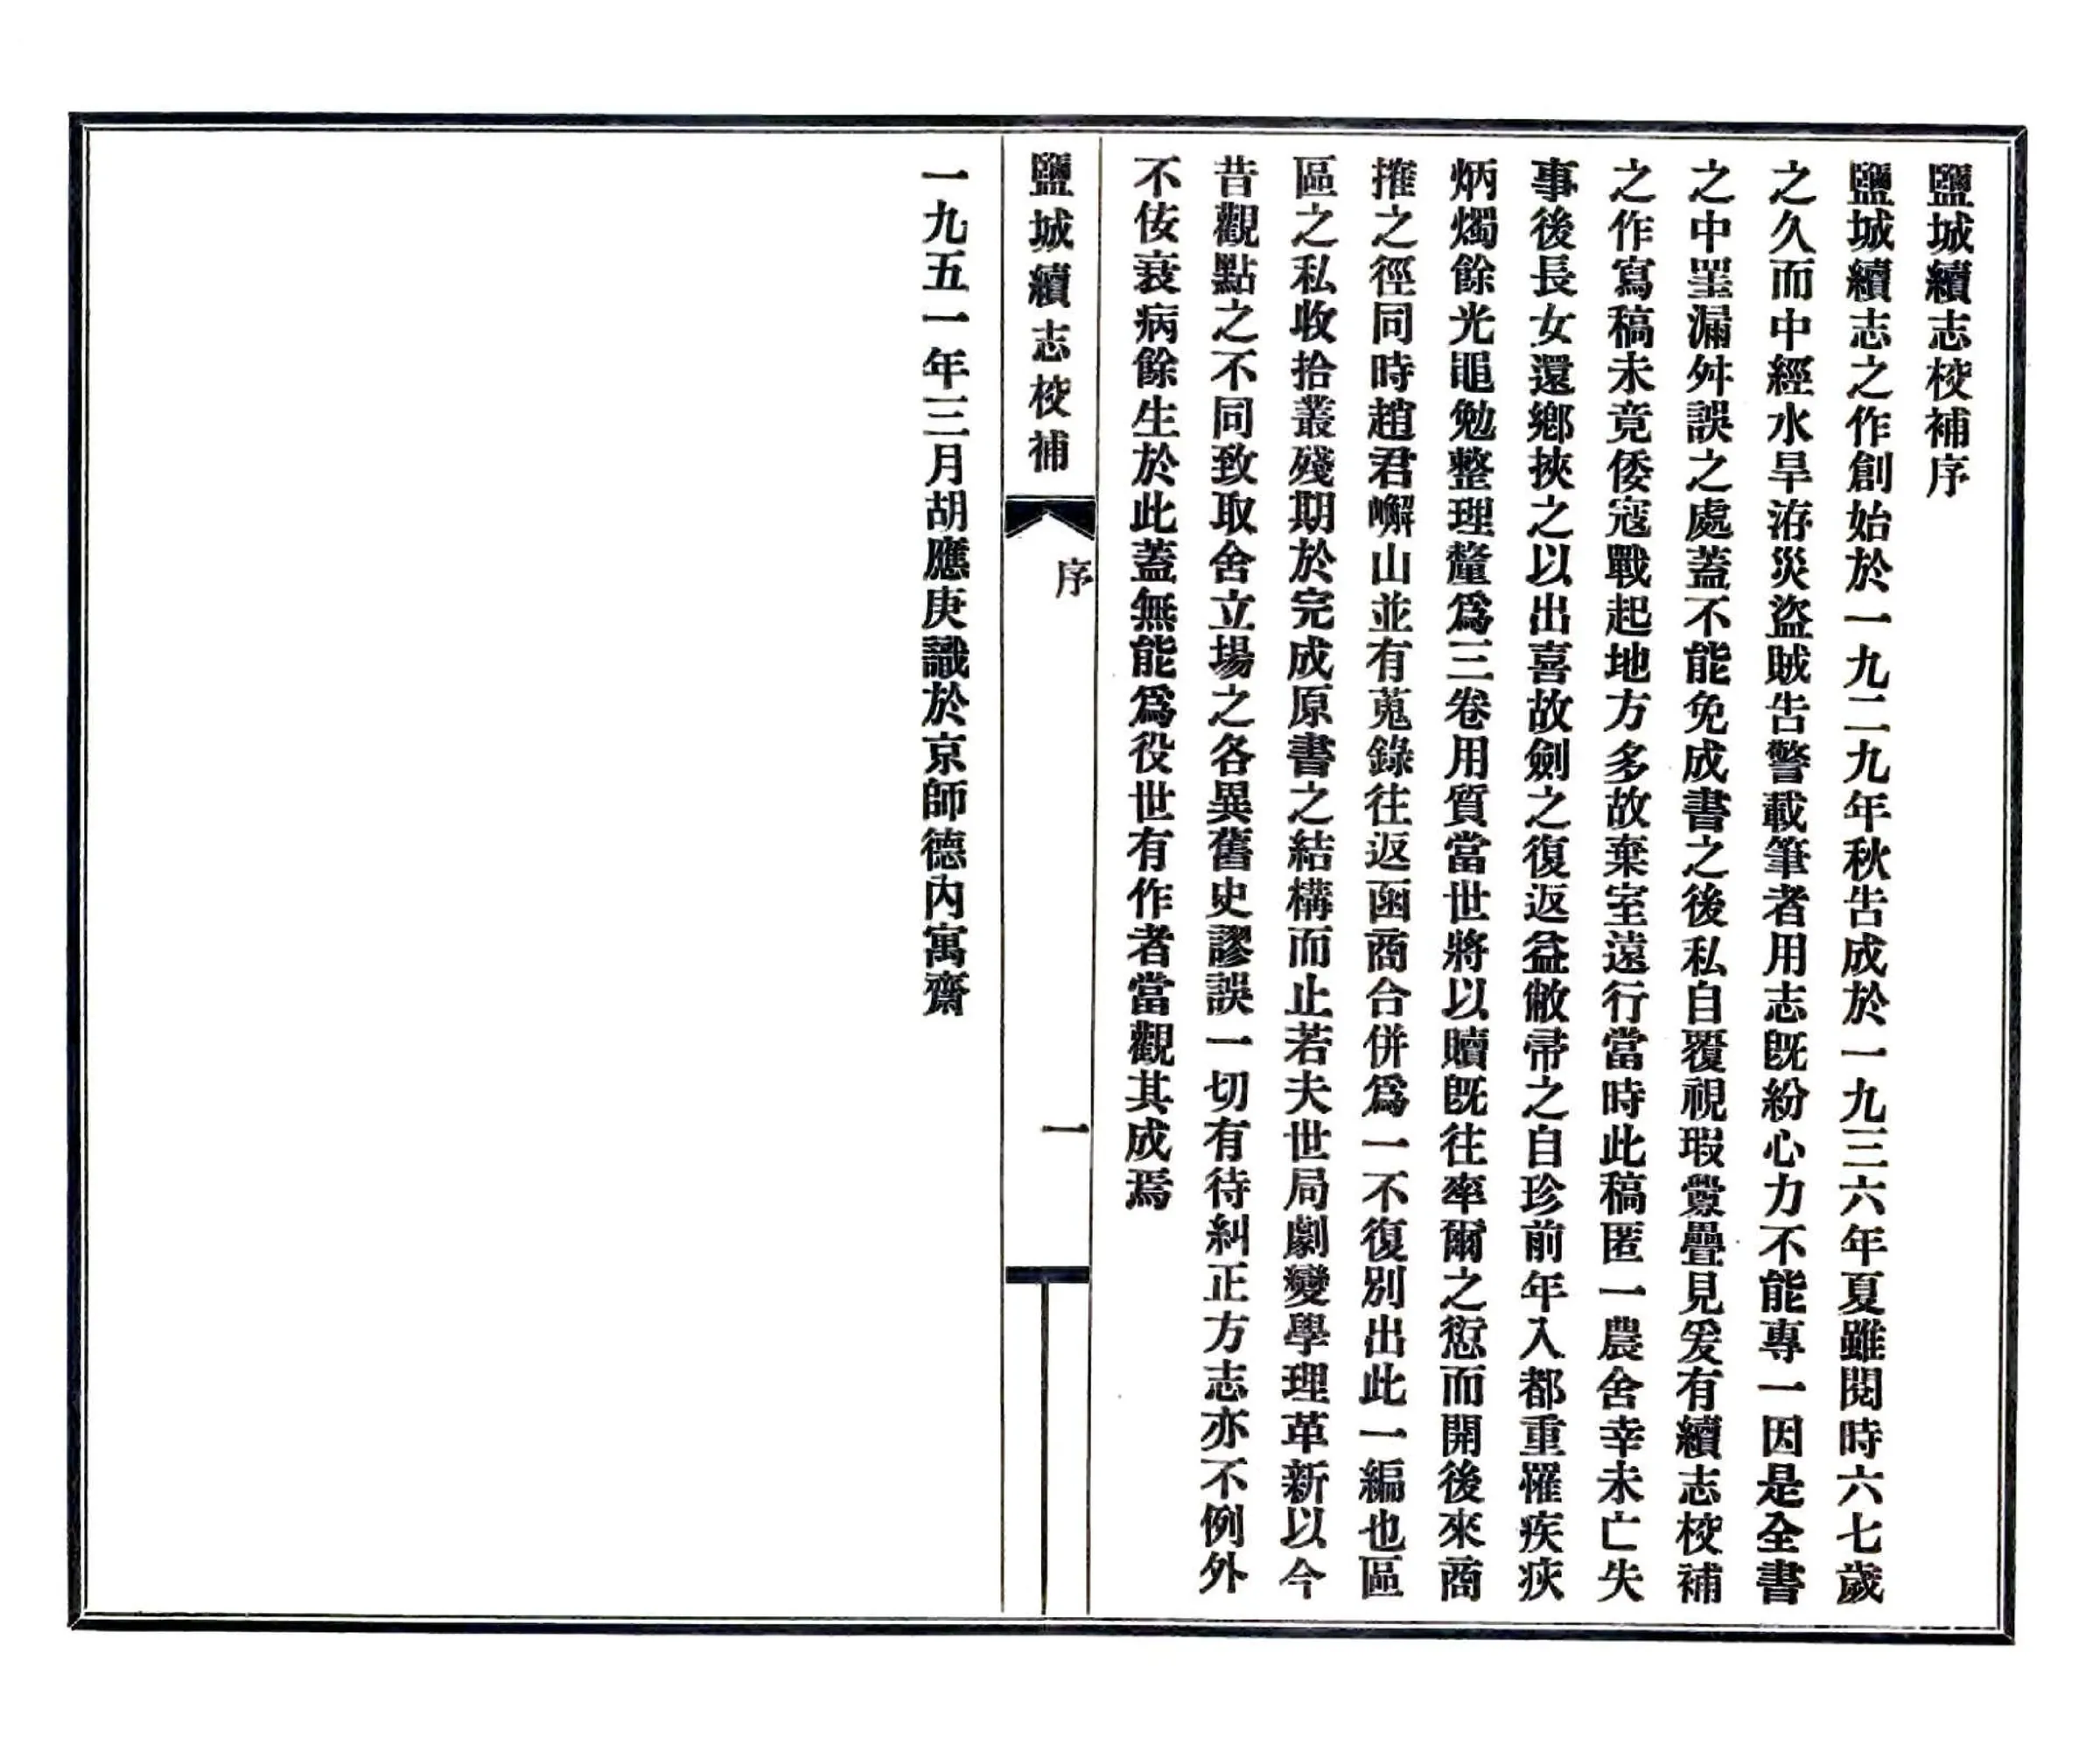 鹽城續志校補序
鹽城續志之作創始於一九二九年秋告成於一九三六年夏雖閱時六七歲
之久而中經水旱洊災盜賊告警載筆者用志旣紛心力不能專一因是全書
之中罣漏舛誤之處蓋不能免成書之後私自覆視瑕釁疊見爰有續志校補
之作寫稿未竟倭寇戰起地方多故棄室遠行當時此稿匿一農舍幸未亡失
事後長女還鄉挾之以出喜故劍之復返益敝帚之自珍前年入都重罹疾疢
炳燭餘光黽勉整理釐爲三卷用質當世將以贖旣往率爾之愆而開後來商
搉之徑同時趙君嶰山並有蒐錄往返函商合併爲一不復別出此一編也區
區之私收拾叢殘期於完成原書之結構而止若夫世局劇變學理革新以今
昔觀點之不同致取舍立場之各異舊史謬誤一切有待糾正方志亦不例外
不佞衰病餘生於此蓋無能爲役世有作者當觀其成焉
鹽城續志校補
序
一
一九五一年三月胡應庚識於京師德內寓齋